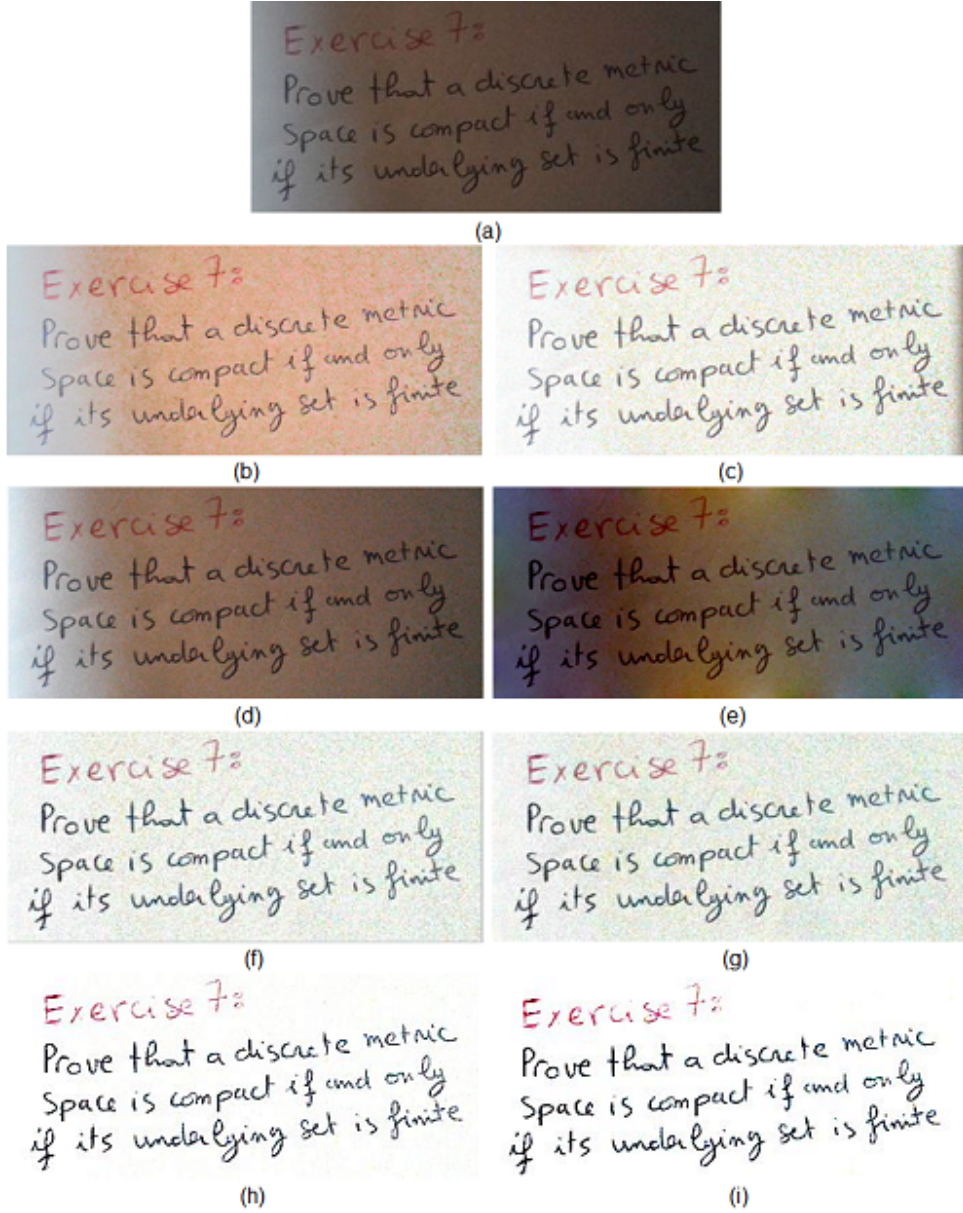 Exercise 7:
Prove that a discrete metric
Space is compact if and only
if its underlying set is finite
(a)
Exercise 7:
Prove that a discrete metric
Space is compact if and only
if its underlying set is finite
(b)
Exercise 7:
Prove that a discrete metric
Space is compact if and only
if its underlying set is finite
(c)
Exercise 7:
Prove that a discrete metric
Space is compact if and only
if its underlying set is finite
(d)
Exercise 7:
Prove that a discrete metric
Space is compact if and only
if its underlying set is finite
(e)
Exercise 7:
Prove that a discrete metric
Space is compact if and only
if its underlying set is finite
(f)
Exercise 7:
Prove that a discrete metric
Space is compact if and only
if its underlying set is finite
(g)
Exercise 7:
Prove that a discrete metric
Space is compact if and only
if its underlying set is finite
(h)
Exercise 7:
Prove that a discrete metric
Space is compact if and only
if its underlying set is finite
(i)